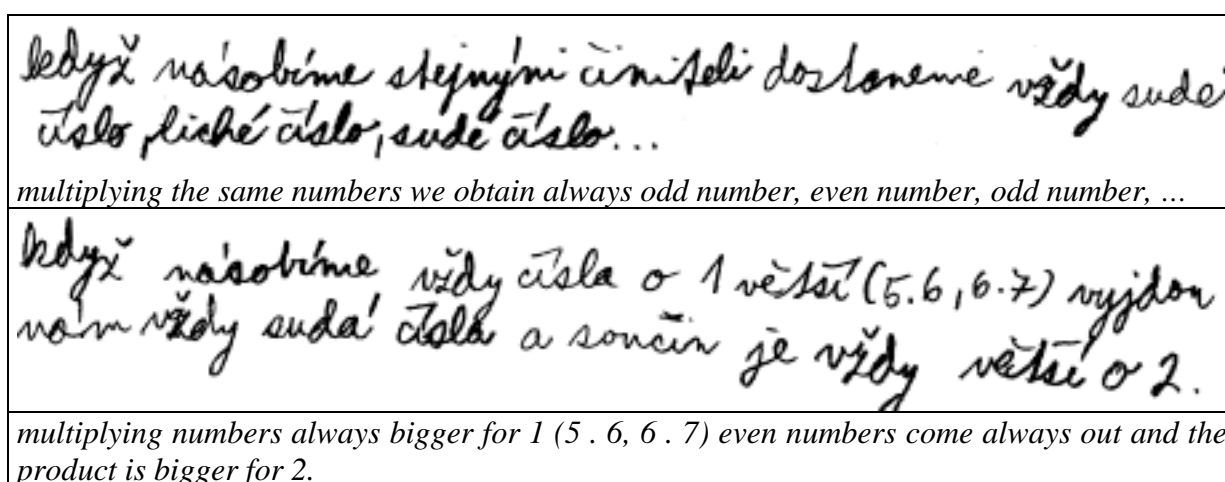 když násobíme stejnými činiteli dostaneme vždy sudé
číslo, liché číslo, sudé číslo...
multiplying the same numbers we obtain always odd number, even number, odd number, ...
když násobíme vždy čísla o 1 větší (5.6, 6.7) vyjdou
nám vždy sudá čísla a součin je vždy větší o 2.
multiplying numbers always bigger for 1 (5 . 6, 6 . 7) even numbers come always out and the
product is bigger for 2.